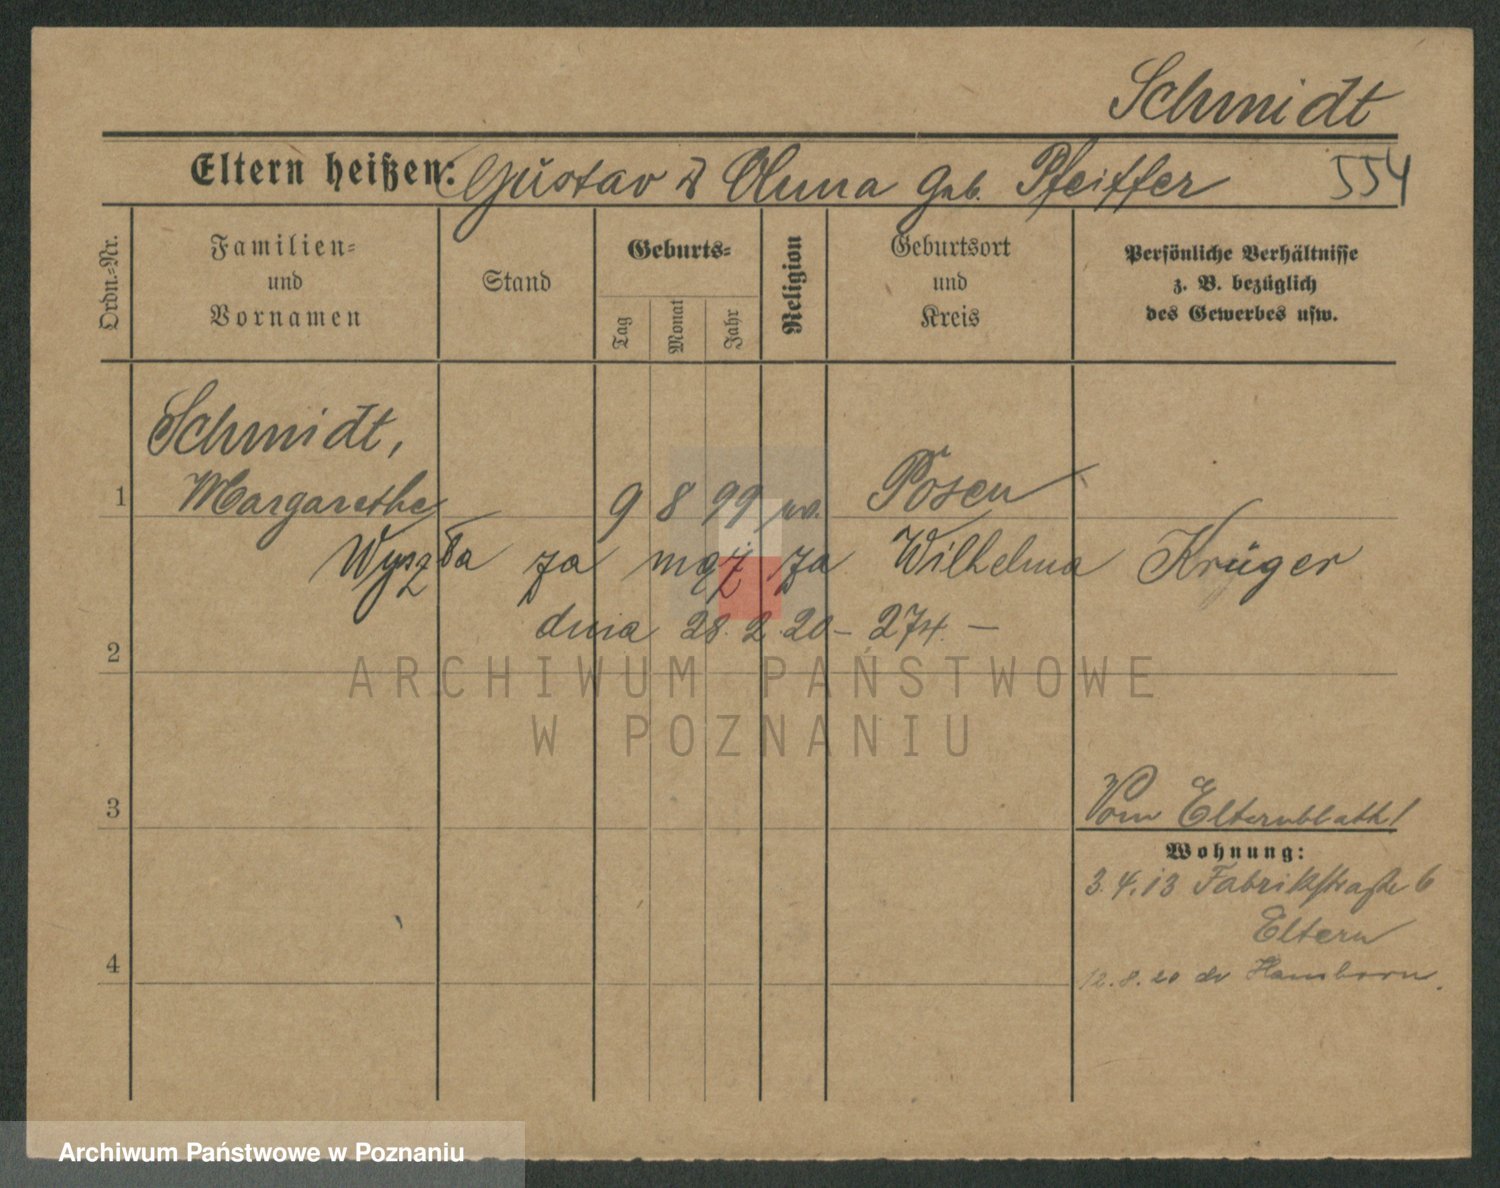 Schmidt
Eltern heißen: Gustav u Anna geb. Pfeiffer 554
Ordn.-Nr.
Familien- und Vornamen
Stand
Geburts-
Tag Monat Jahr
Religion
Geburtsort und Kreis
Persönliche Verhältnisse z. B. bezüglich des Gewerbes usw.
Schmidt,
1 Margarethe 9 8 99 ev. Posen
Wyszła za mąż za Wilhelma Krüger
dnia 28.2.20 – 274. –
2
ARCHIWUM PAŃSTWOWE
W POZNANIU
3 Vom Elternblatt!
Wohnung:
3.4.13 Fabrikstraße 6
Eltern
4 12.8.20 Hamborn.
Archiwum Państwowe w Poznaniu